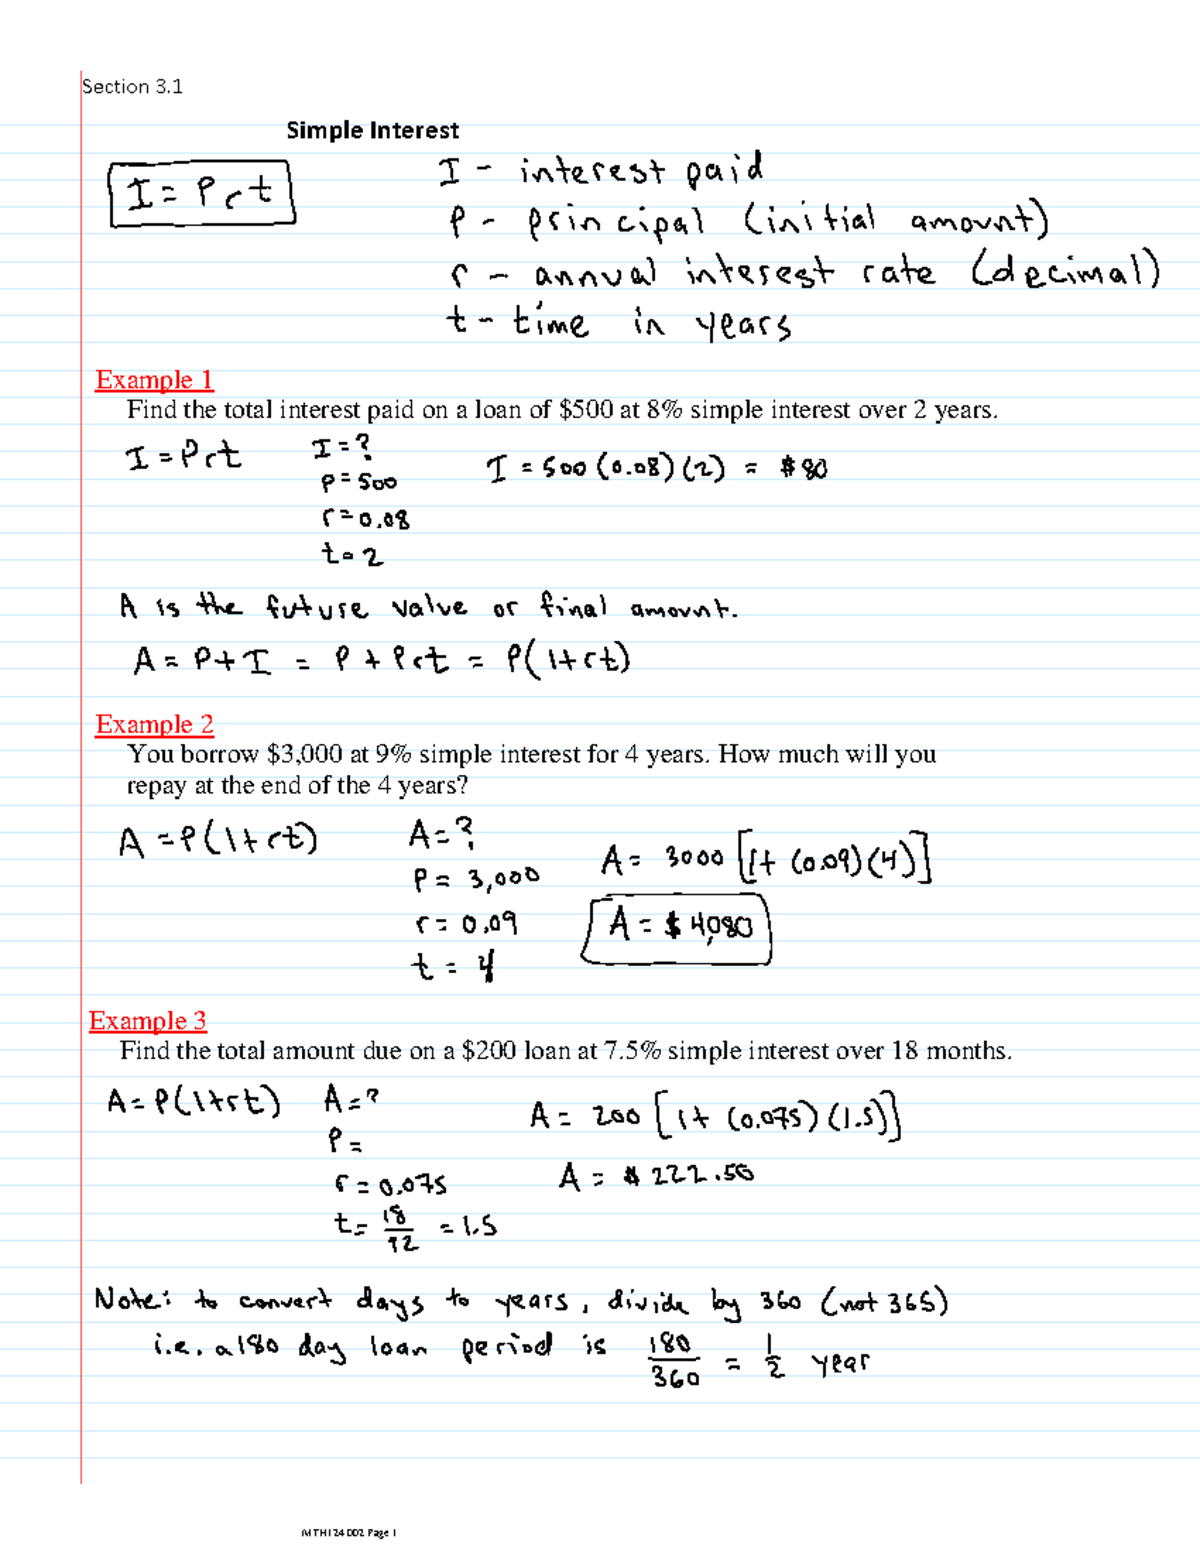 Section 3.1
Simple Interest
I = Prt
I - interest paid
P - principal (initial amount)
r - annual interest rate (decimal)
t - time in years
Example 1
Find the total interest paid on a loan of $500 at 8% simple interest over 2 years.
I = Prt
I = ?
P = 500
r = 0.08
t = 2
I = 500 (0.08) (2) = $80
A is the future value or final amount.
A = P + I = P + Prt = P(1+rt)
Example 2
You borrow $3,000 at 9% simple interest for 4 years. How much will you
repay at the end of the 4 years?
A = P(1+rt)
A = ?
P = 3,000
r = 0.09
t = 4
A = 3000 [1+ (0.09)(4)]
A = $4,080
Example 3
Find the total amount due on a $200 loan at 7.5% simple interest over 18 months.
A = P(1+rt)
A = ?
P =
r = 0.075
t = 18/12 = 1.5
A = 200 [1+ (0.075)(1.5)]
A = $222.50
Note: to convert days to years, divide by 360 (not 365)
i.e. a 180 day loan period is 180/360 = 1/2 year
MTH124 002 Page 1